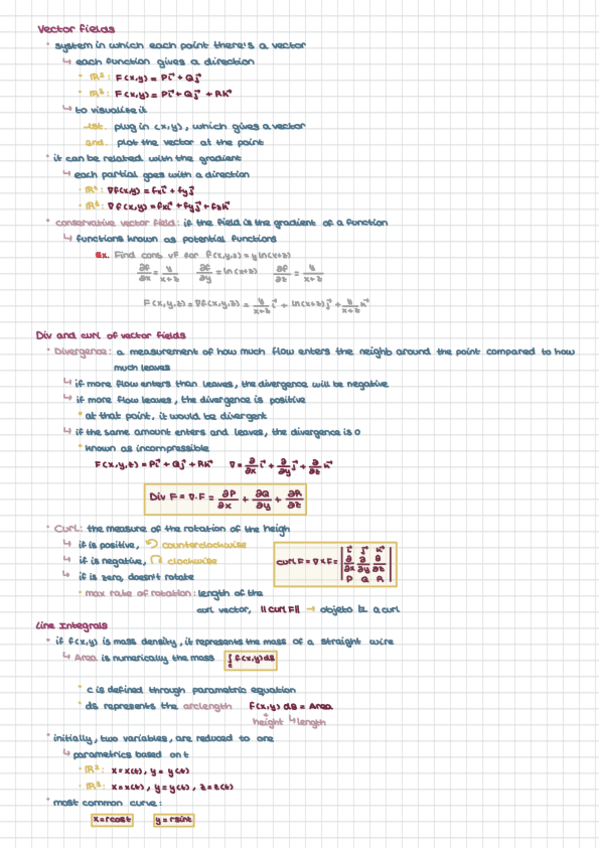 Vector fields
• system in which each point there's a vector
↳ each function gives a direction
• ℝ²: F(x,y) = Pi⃗ + Qj⃗
• ℝ³: F(x,y) = Pi⃗ + Qj⃗ + Rk⃗
↳ to visualize it
1st. plug in (x,y), which gives a vector
2nd. plot the vector at the point
• it can be related with the gradient
↳ each partial goes with a direction
∇f(x,y) = fxi⃗ + fyj⃗
∇f(x,y) = fxi⃗ + fyj⃗ + fzk⃗
• conservative vector field: if the field is the gradient of a function
↳ functions known as potential functions
Ex. Find cons vf for f(x,y,z) = y ln(x+z)
∂f/∂x = y/x+z ∂f/∂y = ln(x+z) ∂f/∂z = y/x+z
F(x,y,z) = ∇f(x,y,z) = y/x+z i⃗ + ln(x+z)j⃗ + y/x+z k⃗
Div and curl of vector fields
• Divergence: a measurement of how much flow enters the neighb around the point compared to how
much leaves
↳ if more flow enters than leaves, the divergence will be negative
↳ if more flow leaves, the divergence is positive
• at that point, it would be divergent
↳ if the same amount enters and leaves, the divergence is 0
• known as incompressible
F(x,y,z) = Pi⃗ + Qj⃗ + Rk⃗ ∇ = ∂/∂x i⃗ + ∂/∂y j⃗ + ∂/∂z k⃗
Div F = ∇·F = ∂P/∂x + ∂Q/∂y + ∂R/∂z
• Curl: the measure of the rotation of the heigh
↳ if is positive, ↺ counterclockwise
↳ if is negative, ↻ clockwise
↳ if is zero, doesn't rotate
curl F = ∇ × F = | i⃗ j⃗ k⃗ |
| ∂/∂x ∂/∂y ∂/∂z |
| P Q R |
• max rate of rotation: length of the
curl vector, ||curl F|| → objeto ⊥ a curl
Line Integrals
• if f(x,y) is mass density, it represents the mass of a straight wire
↳ Area is numerically the mass ∫c f(x,y)ds
• c is defined through parametric equation
• ds represents the arclength F(x,y) ds = Area
height ↳ length
• initially, two variables, are reduced to one
↳ parametrics based on t
• ℝ²: x = x(t), y = y(t)
• ℝ³: x = x(t), y = y(t), z = z(t)
• most common curve:
x = rcost y = rsint